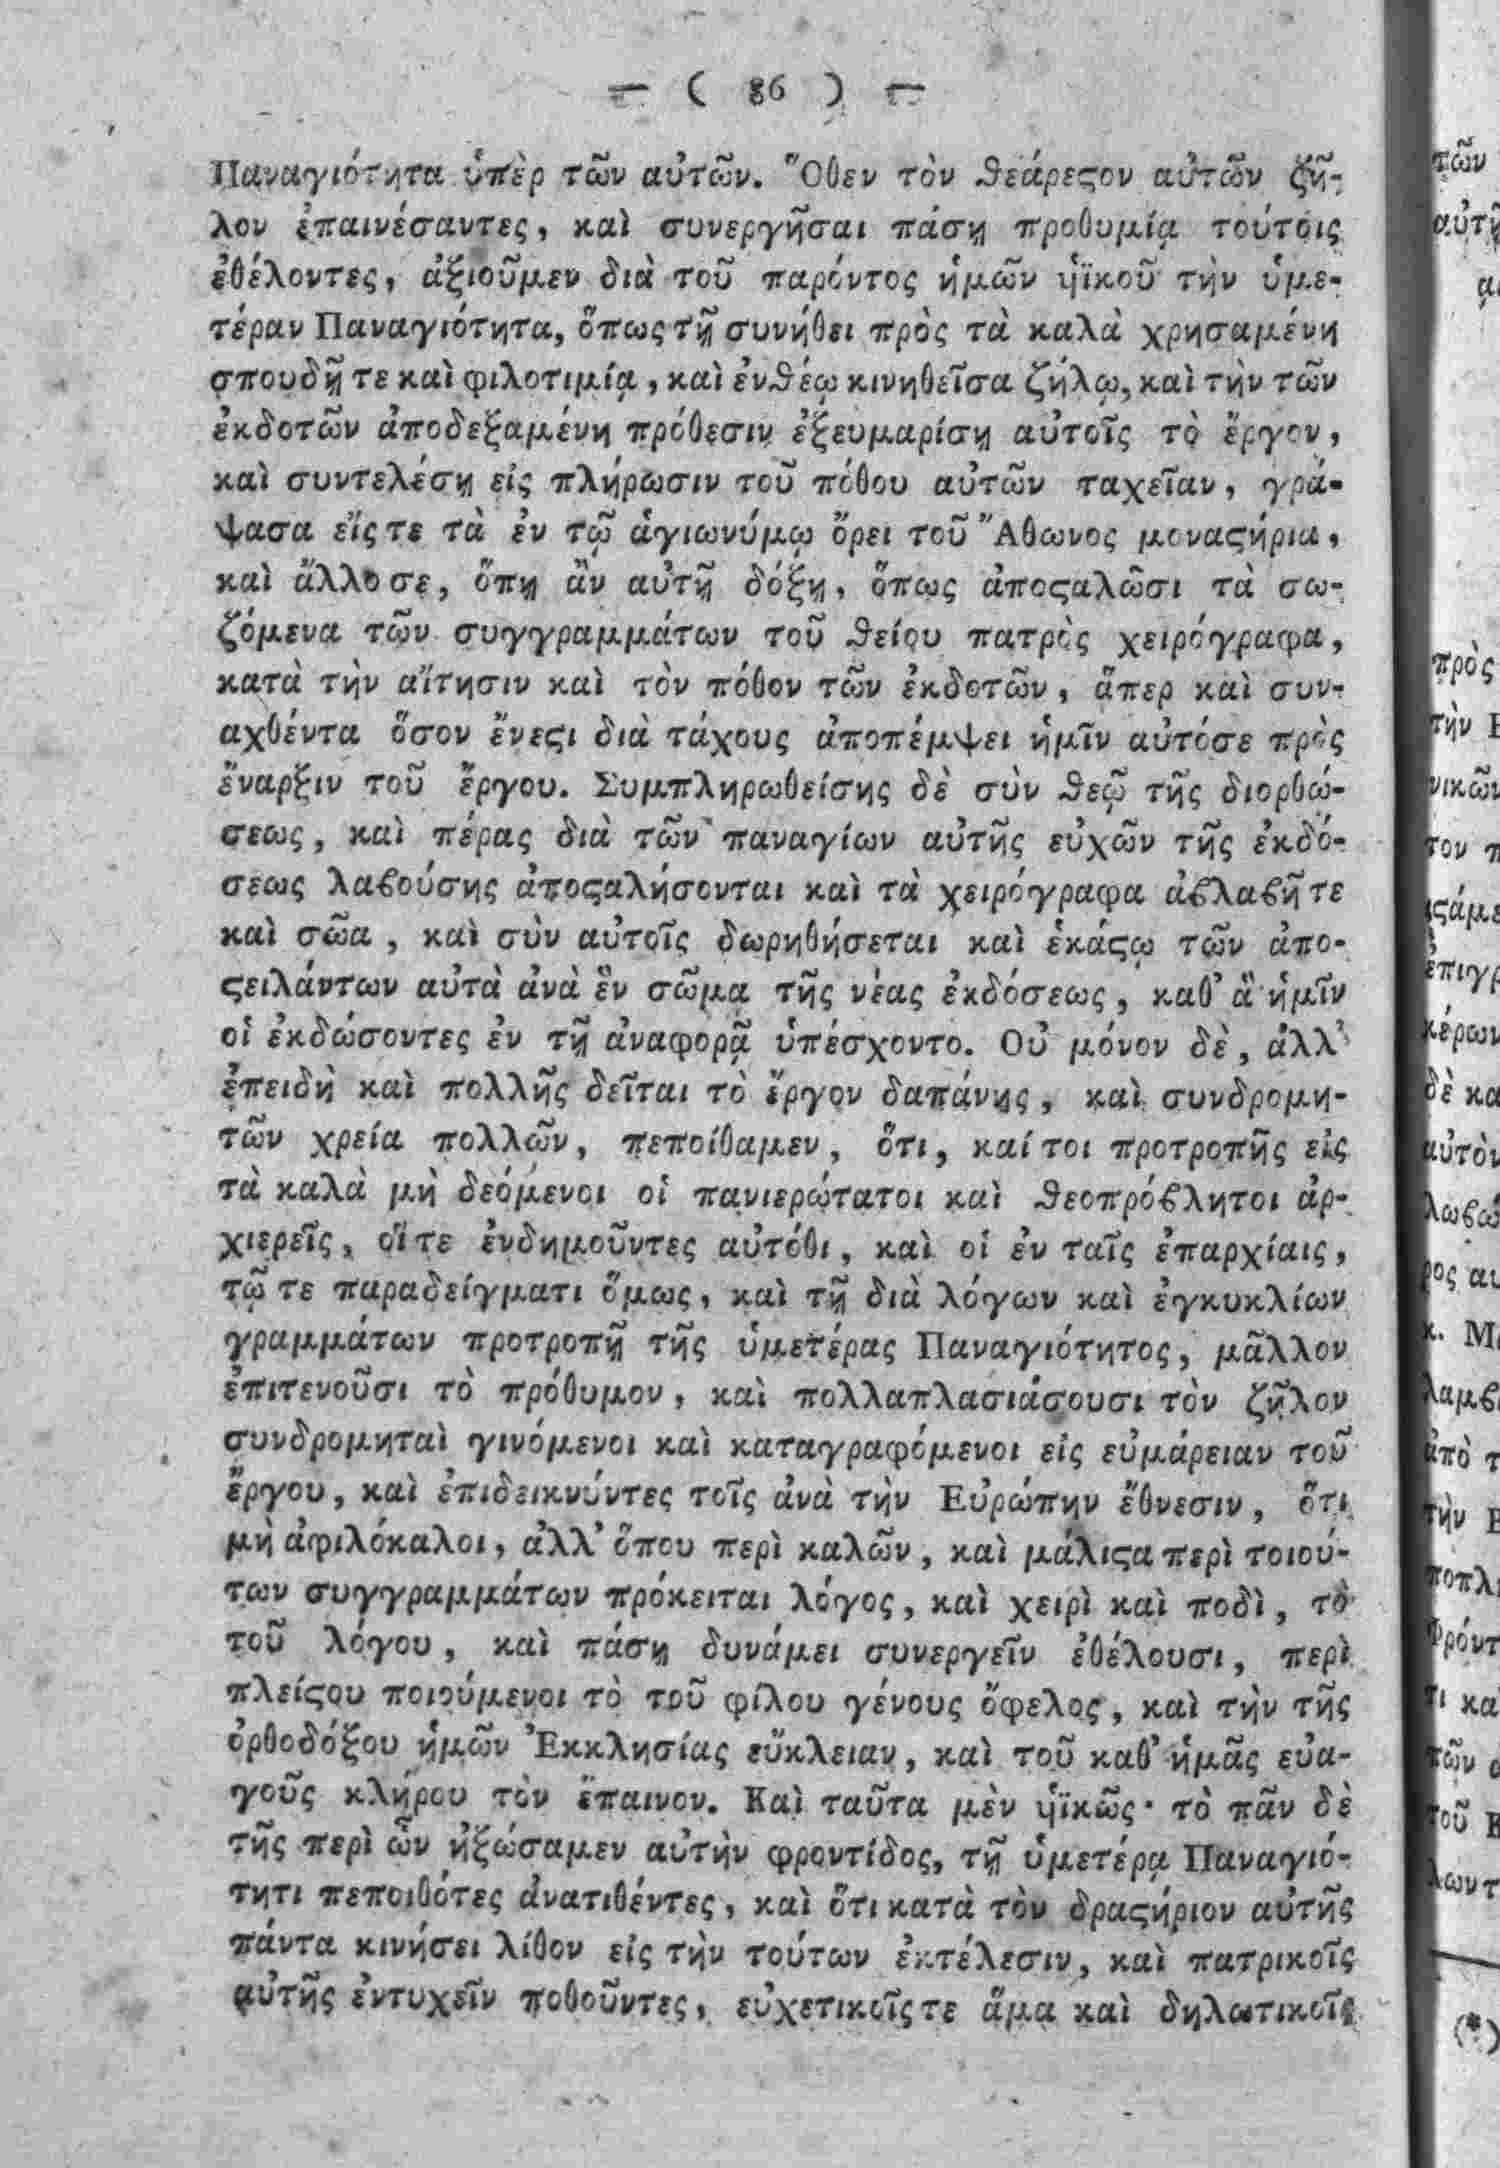 — ( 86 ) —
Παναγιότητα ὑπὲρ τῶν αὐτῶν. Ὅθεν τὸν ϑεάρεςον αὐτῶν ζῆ-
λον ἐπαινέσαντες, καὶ συνεργῆσαι πάσῃ προθυμίᾳ τούτοις
ἐθέλοντες, ἀξιοῦμεν διὰ τοῦ παρόντος ἡμῶν ἡϊκοῦ τὴν ὑμε-
τέραν Παναγιότητα, ὅπως τῇ συνήθει πρὸς τὰ καλὰ χρησαμένη
σπουδῇ τε καὶ φιλοτιμίᾳ, καὶ ἐνϑέῳ κινηθεῖσα ζήλῳ, καὶ τὴν τῶν
ἐκδοτῶν ἀποδεξαμένη πρόθεσιν ἐξευμαρίσῃ αὐτοῖς τὸ ἔργον,
καὶ συντελέσῃ εἰς πλήρωσιν τοῦ πόθου αὐτῶν ταχεῖαν, γρά-
ψασα εἴς τε τὰ ἐν τῷ ἁγιωνύμῳ ὄρει τοῦ Ἄθωνος μοναςήρια,
καὶ ἄλλοσε, ὅπῃ ἂν αὐτῇ δόξῃ, ὅπως ἀποςαλῶσι τὰ σω-
ζόμενα τῶν συγγραμμάτων τοῦ ϑείου πατρὸς χειρόγραφα,
κατὰ τὴν αἴτησιν καὶ τὸν πόθον τῶν ἐκδοτῶν, ἅπερ καὶ συν-
αχθέντα ὅσον ἔνεςι διὰ τάχους ἀποπέμψει ἡμῖν αὐτόσε πρὸς
ἔναρξιν τοῦ ἔργου. Συμπληρωθείσης δὲ σὺν ϑεῷ τῆς διορθώ-
σεως, καὶ πέρας διὰ τῶν παναγίων αὐτῆς εὐχῶν τῆς ἐκδό-
σεως λαϐούσης ἀποςαλήσονται καὶ τὰ χειρόγραφα ἀϐλαϐῆ τε
καὶ σῶα, καὶ σὺν αὐτοῖς δωρηθήσεται καὶ ἑκάςῳ τῶν ἀπο-
ςειλάντων αὐτὰ ἀνὰ ἓν σῶμα τῆς νέας ἐκδόσεως, καθ' ἃ ἡμῖν
οἱ ἐκδώσοντες ἐν τῇ ἀναφορᾷ ὑπέσχοντο. Οὐ μόνον δὲ, ἀλλ'
ἐπειδὴ καὶ πολλῆς δεῖται τὸ ἔργον δαπάνης, καὶ συνδρομη-
τῶν χρεία πολλῶν, πεποίθαμεν, ὅτι, καί τοι προτροπῆς εἰς
τὰ καλὰ μὴ δεόμενοι οἱ πανιερώτατοι καὶ ϑεοπρόϐλητοι ἀρ-
χιερεῖς, οἵ τε ἐνδημοῦντες αὐτόθι, καὶ οἱ ἐν ταῖς ἐπαρχίαις,
τῷ τε παραδείγματι ὅμως, καὶ τῇ διὰ λόγων καὶ ἐγκυκλίων
γραμμάτων προτροπῇ τῆς ὑμετέρας Παναγιότητος, μᾶλλον
ἐπιτενοῦσι τὸ πρόθυμον, καὶ πολλαπλασιάσουσι τὸν ζῆλον
συνδρομηταὶ γινόμενοι καὶ καταγραφόμενοι εἰς εὐμάρειαν τοῦ
ἔργου, καὶ ἐπιδεικνύντες τοῖς ἀνὰ τὴν Εὐρώπην ἔθνεσιν, ὅτι
μὴ ἀφιλόκαλοι, ἀλλ' ὅπου περὶ καλῶν, καὶ μάλιςα περὶ τοιού-
των συγγραμμάτων πρόκειται λόγος, καὶ χειρὶ καὶ ποδὶ, τὸ
τοῦ λόγου, καὶ πάσῃ δυνάμει συνεργεῖν ἐθέλουσι, περὶ
πλείςου ποιούμενοι τὸ τοῦ φίλου γένους ὄφελος, καὶ τὴν τῆς
ὀρθοδόξου ἡμῶν Ἐκκλησίας εὔκλειαν, καὶ τοῦ καθ' ἡμᾶς εὐα-
γοῦς κλήρου τὸν ἔπαινον. Καὶ ταῦτα μὲν ἡϊκῶς· τὸ πᾶν δὲ
τῆς περὶ ὧν ἠξώσαμεν αὐτὴν φροντίδος, τῇ ὑμετέρᾳ Παναγιό-
τητι πεποιθότες ἀνατιθέντες, καὶ ὅτι κατὰ τὸν δραςήριον αὐτῆς
πάντα κινήσει λίθον εἰς τὴν τούτων ἐκτέλεσιν, καὶ πατρικοῖς
αὐτῆς ἐντυχεῖν ποθοῦντες, εὐχετικοῖς τε ἅμα καὶ δηλωτικοῖς